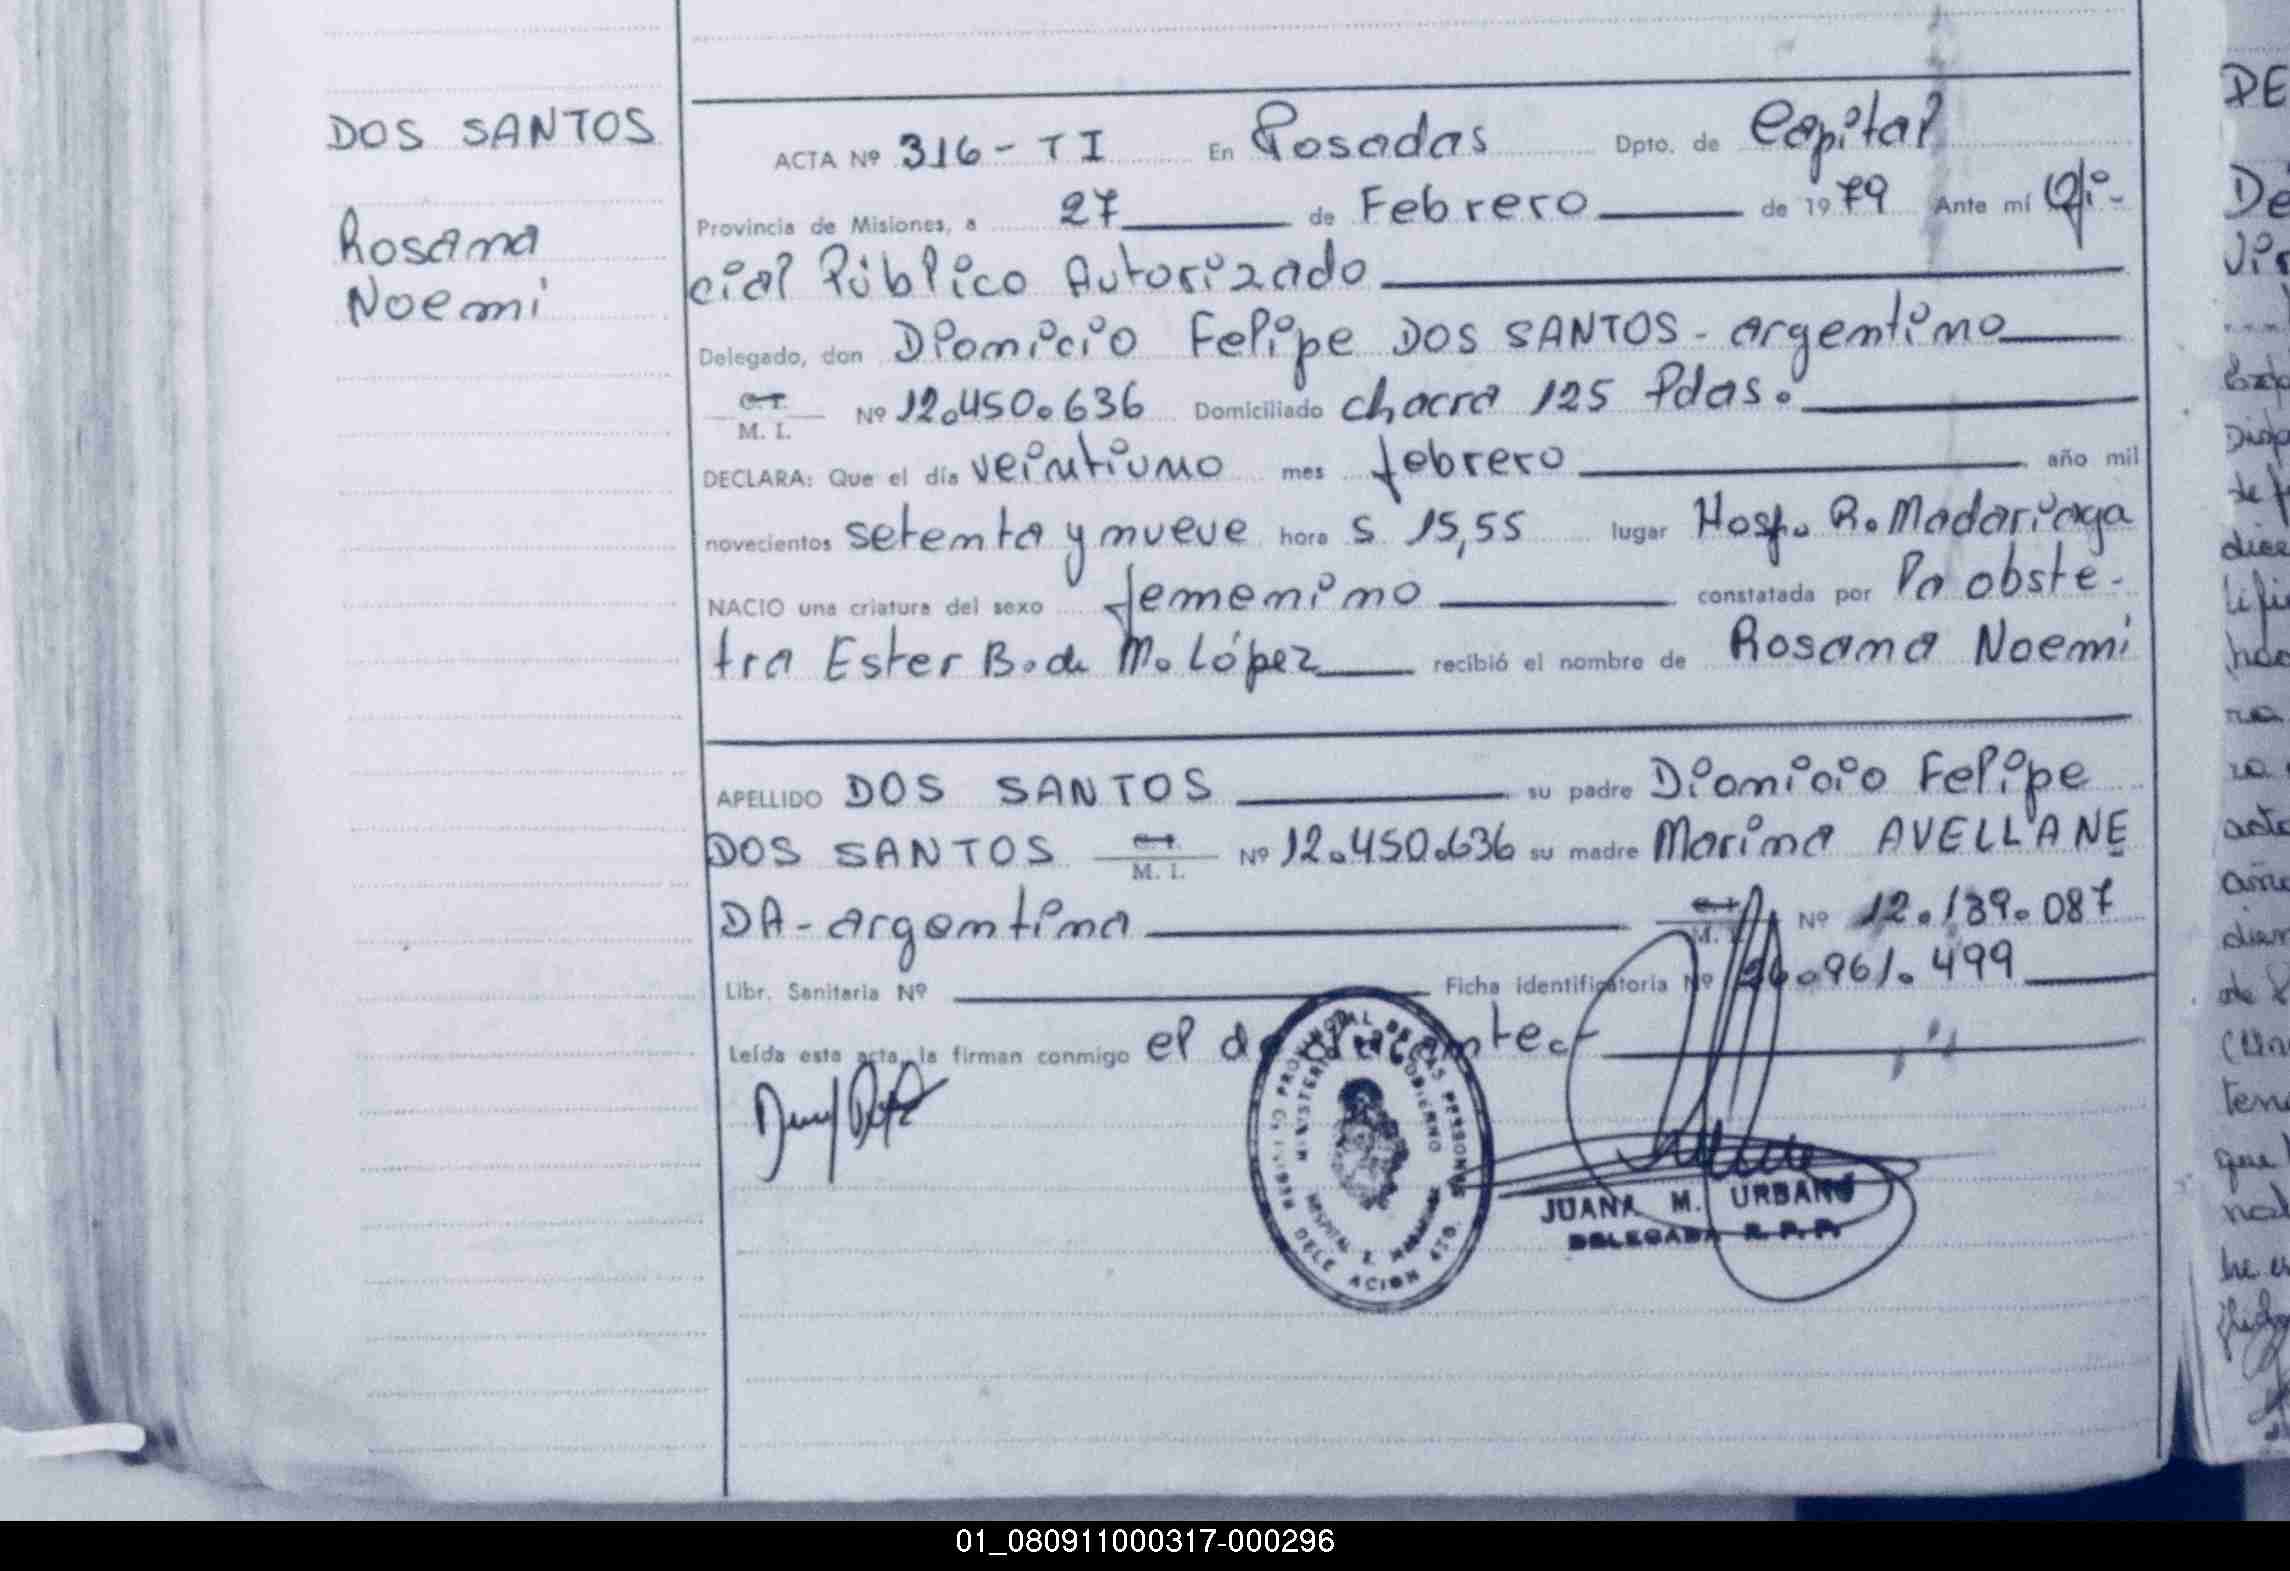 DOS SANTOS
Rosana
Noemi
ACTA Nº 316 - T I En Posadas Dpto. de Capital
Provincia de Misiones, a 27 de Febrero de 1979 Ante mí Ofi-
cial Público Autorizado
Delegado, don Dionicio Felipe DOS SANTOS - argentino
C. I.
M. I. Nº 12.450.636 Domiciliado chacra 125 Pdas.
DECLARA: Que el día veintiuno mes febrero año mil
novecientos setenta y nueve hora s 15,55 lugar Hosp. R. Madariaga
NACIO una criatura del sexo femenino constatada por la obste-
tra Ester B. de M. López recibió el nombre de Rosana Noemi
APELLIDO DOS SANTOS su padre Dionicio Felipe
DOS SANTOS C. I.
M. I. Nº 12.450.636 su madre Marina AVELLANE
DA - argentina C. I.
M. I. Nº 12.139.087
Libr. Sanitaria Nº Ficha identificatoria Nº 26.961.499
Leída esta acta, la firman conmigo el declarante.-
REGISTRO PROVINCIAL DE LAS PERSONAS
MINISTERIO DE GOBIERNO
HOSPITAL R. MADARIAGA
JUANA M. URBANO
DELEGADA R. P. P.
01_080911000317-000296